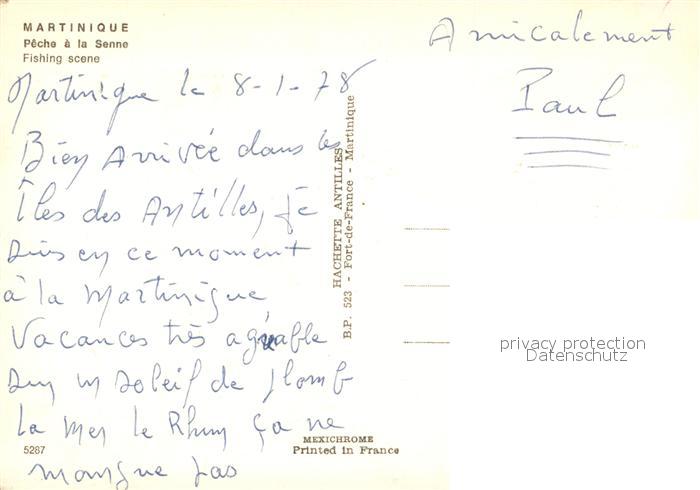 MARTINIQUE
Pêche à la Senne
Fishing scene
Martinique le 8-1-78
Bien Arrivée dans les
Îles des Antilles, je
suis en ce moment
à la Martinique
Vacances très agréable
sous un soleil de plomb
la mer le Rhum ça ne
manque pas
5287
MEXICHROME
Printed in France
HACHETTE ANTILLES
B.P. 523 - Fort-de-France - Martinique
Amicalement
Paul
privacy protection
Datenschutz